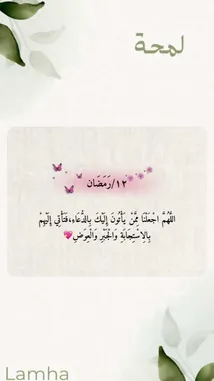 لمحة
١٢/رَمَضَان
اللَّهُمَّ اجْعَلْنَا مِمَّنْ يَأْتُونَ إِلَيْكَ بِالدُّعَاءِ،فَتَأْتِي إِلَيْهِمْ
بِالِاسْتِجَابَةِ وَالْجَبْرِ وَالْعِوَضِ💗
Lamha